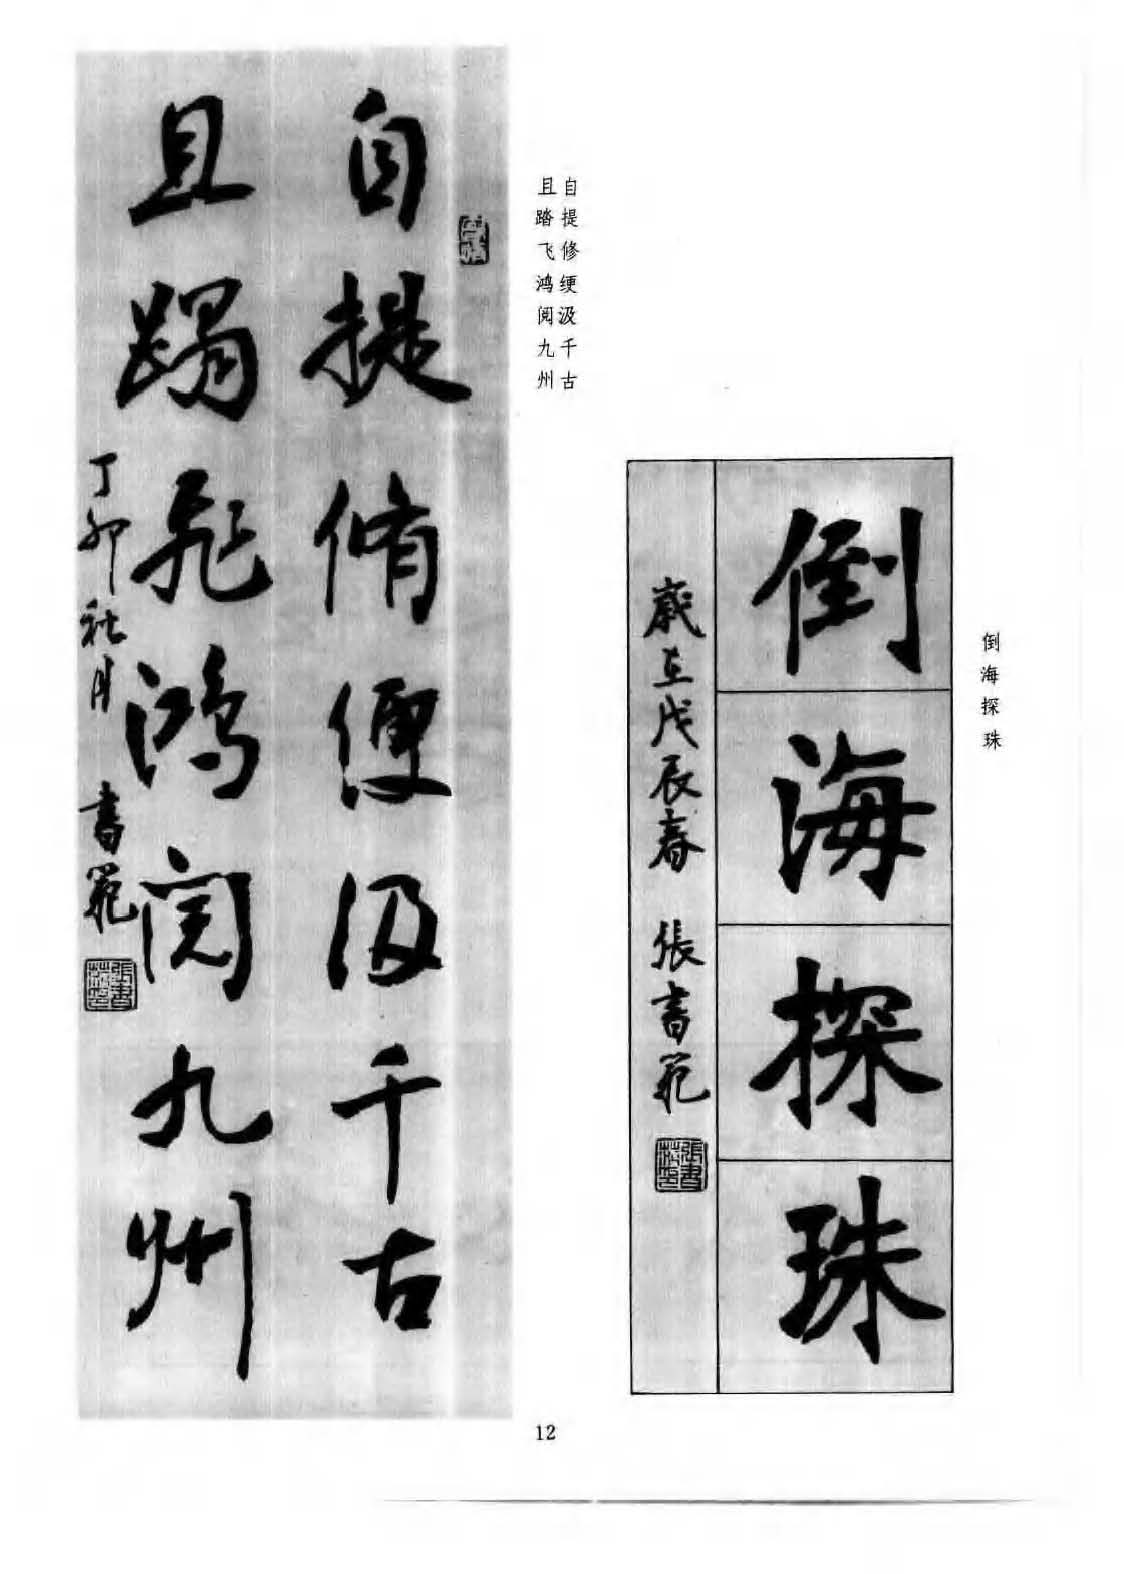 自提脩綆汲千古
且蹋飛鴻閱九州
丁卯社月 書範
自提修绠汲千古
且踏飞鸿阅九州
倒海探珠
歲在戊辰春 張書範
倒海探珠
12